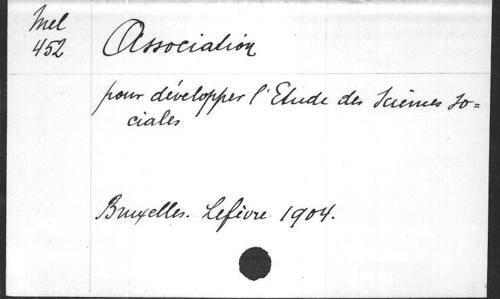 Mel
452
Association
pour développer l'Etude des Sciences So=
ciales
Bruxelles. Lefèvre 1904.